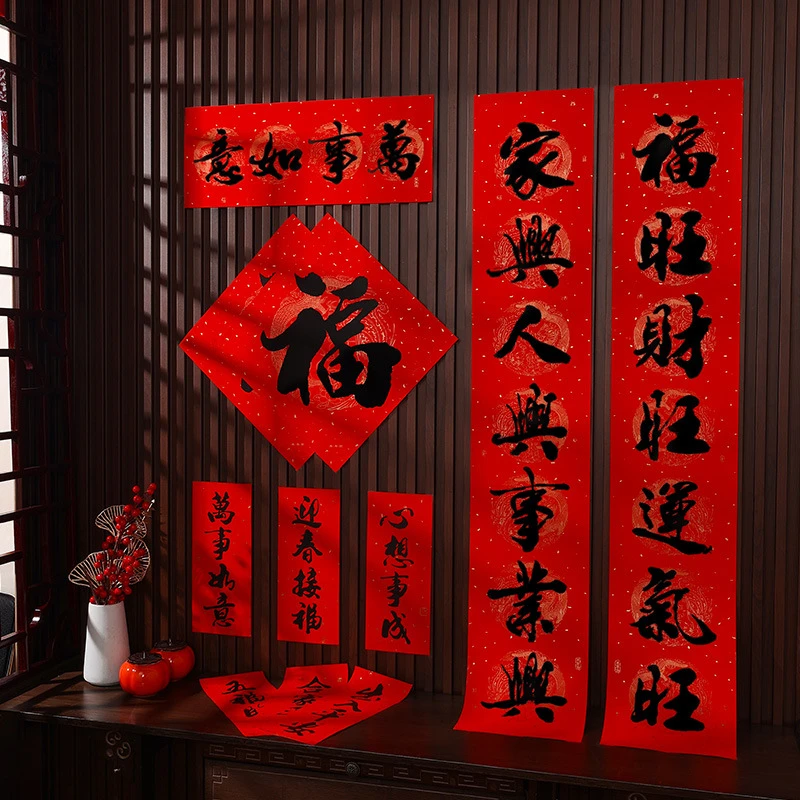 萬事如意
福
福旺財旺運氣旺
家興人興事業興
心想事成
迎春接福
萬事如意
出入平安
合家
五